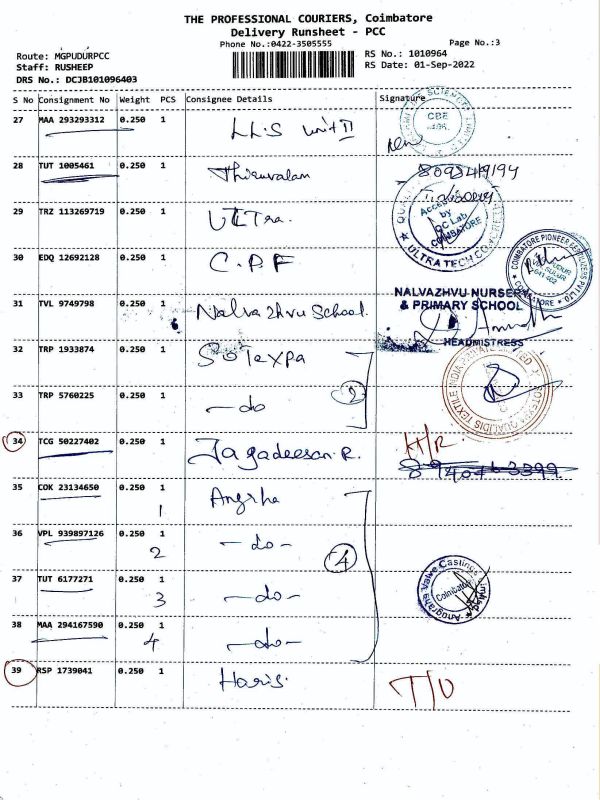 THE PROFESSIONAL COURIERS, Coimbatore
Delivery Runsheet - PCC
Phone No.:0422-3505555
Page No.:3
Route: MGPUDURPCC
Staff: RUSHEEP
DRS No.: DCJB101096403
RS No.: 1010964
RS Date: 01-Sep-2022
S No Consignment No Weight PCS Consignee Details Signature
27 MAA 293293312 0.250 1 LLS unit II
CBE
28 TUT 1005461 0.250 1 Thiruvalam
29 TRZ 113269719 0.250 1 ULTra.
Accepted by QC Lab COIMBATORE
ULTRA TECH
30 EDQ 12692128 0.250 1 C.P.F
COIMBATORE PIONEER FERTILIZERS PVT LTD
641 402
COIMBATORE
31 TVL 9749798 0.250 1 Nalvazhvu School.
NALVAZHVU NURSERY
& PRIMARY SCHOOL
HEADMISTRESS
32 TRP 1933874 0.250 1 Sotexpa
33 TRP 5760225 0.250 1 -do
2
SOTEXPA QUALIDIS TEXTILE INDIA PRIVATE LIMITED
34 TCG 50227402 0.250 1 Jagadeesan.R.
35 COK 23134650 0.250 1 Angrha
1
36 VPL 939897126 0.250 1 -do-
2
4
37 TUT 6177271 0.250 1 -do-
3
Anugraha Valve Castings Limited
Coimbatore
38 MAA 294167590 0.250 1 -do-
4
39 RSP 1739041 0.250 1 Haris.
T/U